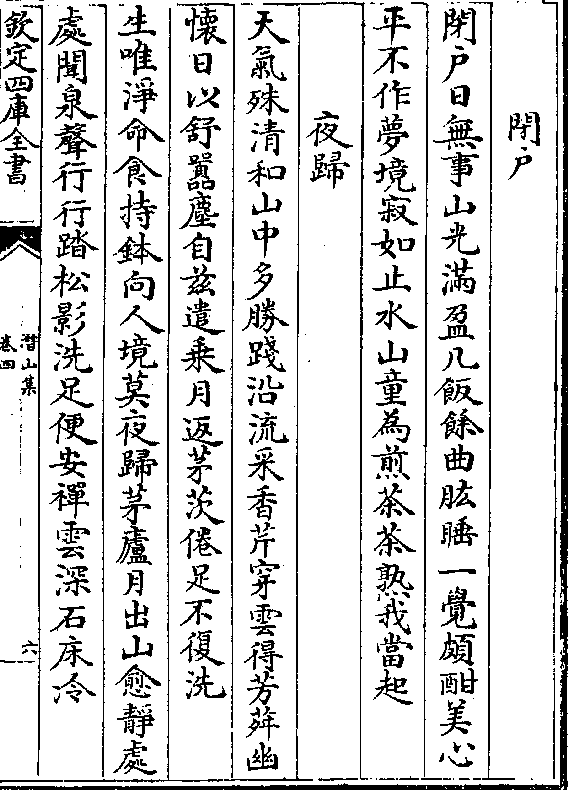 閉户
閉户日無事山光滿盈几飯餘曲肱睡一覺頗酣美心
平不作夢境寂如止水山童為煎茶茶熟我當起
夜歸
天氣殊清和山中多勝踐沿流采香芹穿雲得芳荈幽
懷日以舒囂塵自兹遣乗月返茅茨倦足不復洗
生唯淨命食持鉢向人境莫夜歸茅廬月出山愈靜處
處聞泉聲行行踏松影洗足便安禪雲深石床冷
欽定四庫全書
潛山集
卷四
六